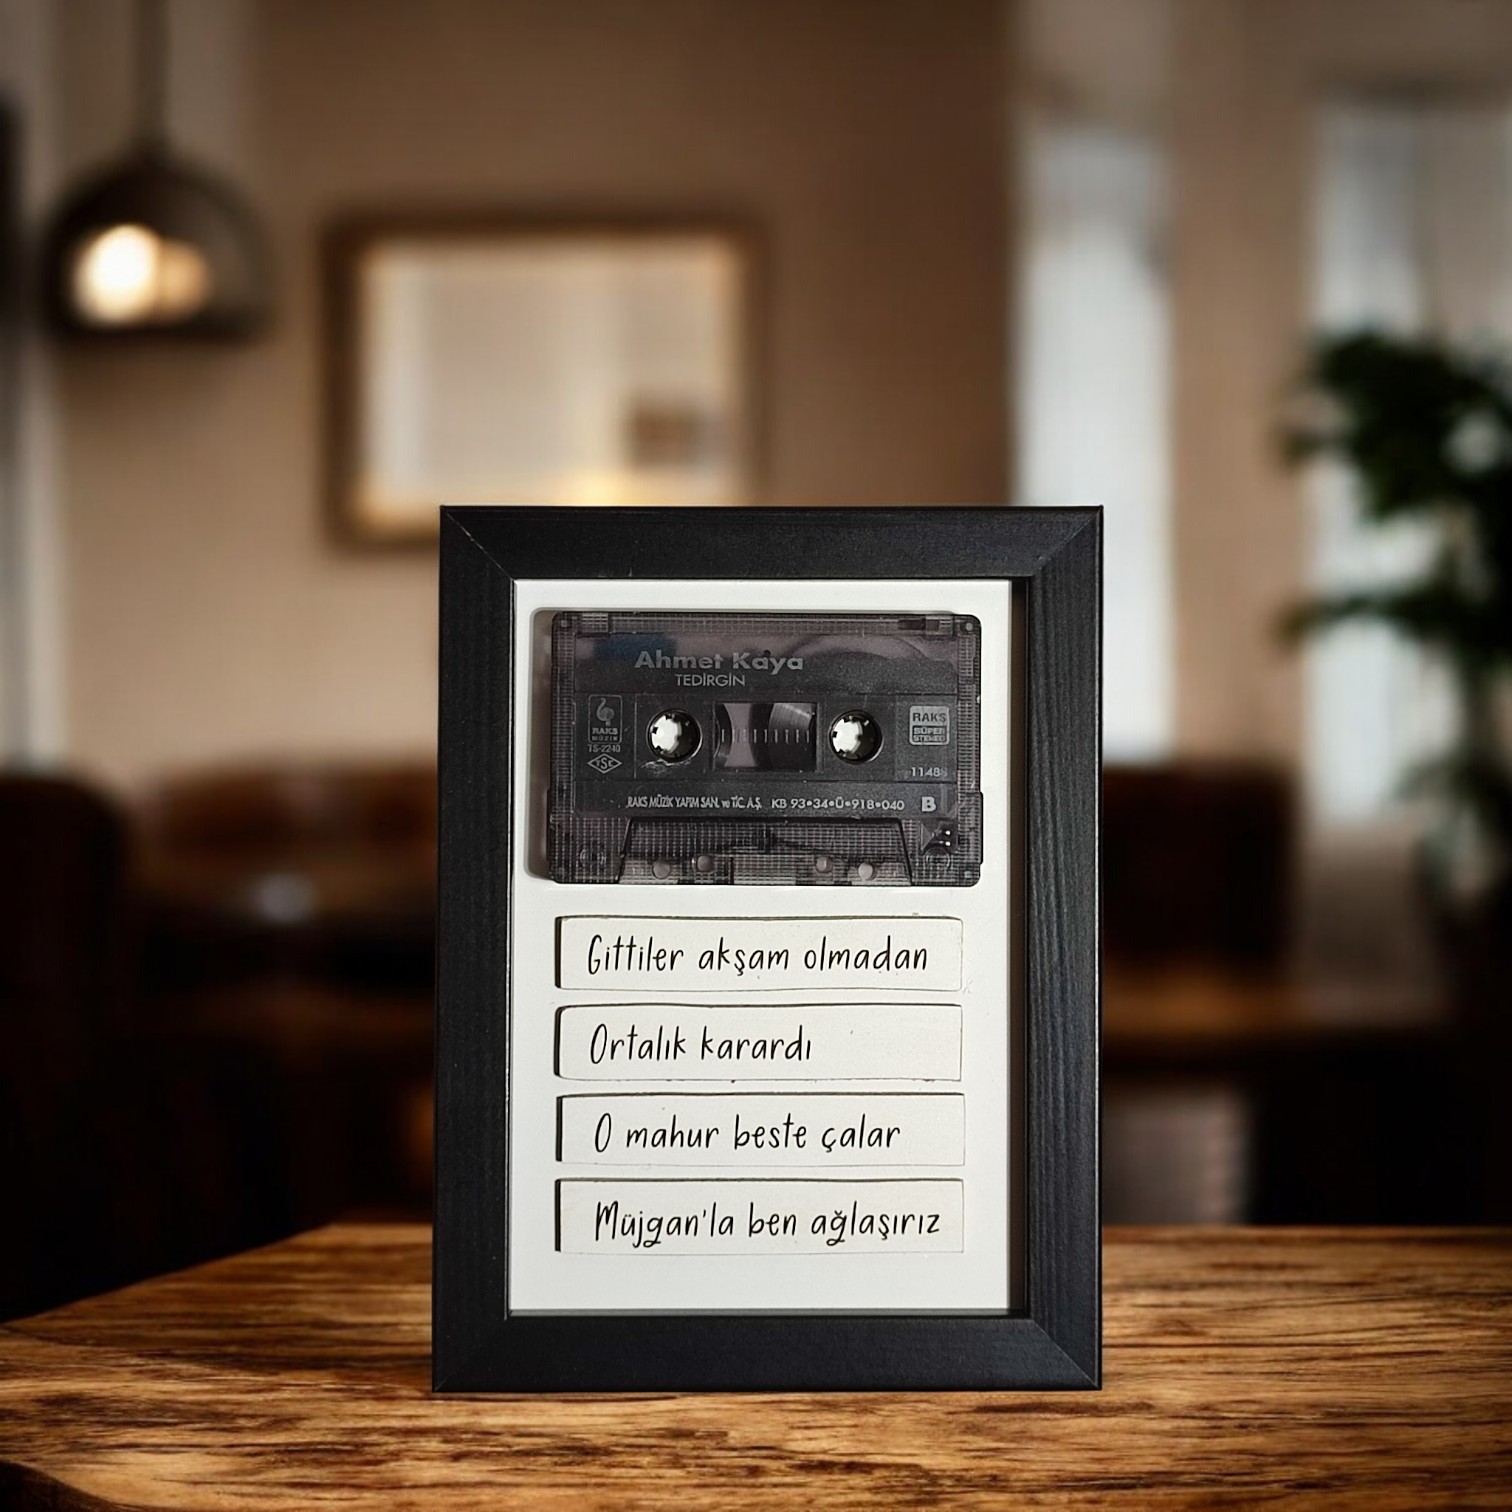 Ahmet Kaya
TEDİRGİN
RAKS
MÜZİK
TS-2240
TSE
RAKS
SÜPER
STEREO
1148
RAKS MÜZİK YAPIM SAN. ve TİC. A.Ş. KB 93•34•Ü•918•040 B
Gittiler akşam olmadan
Ortalık karardı
O mahur beste çalar
Müjgan'la ben ağlaşırız